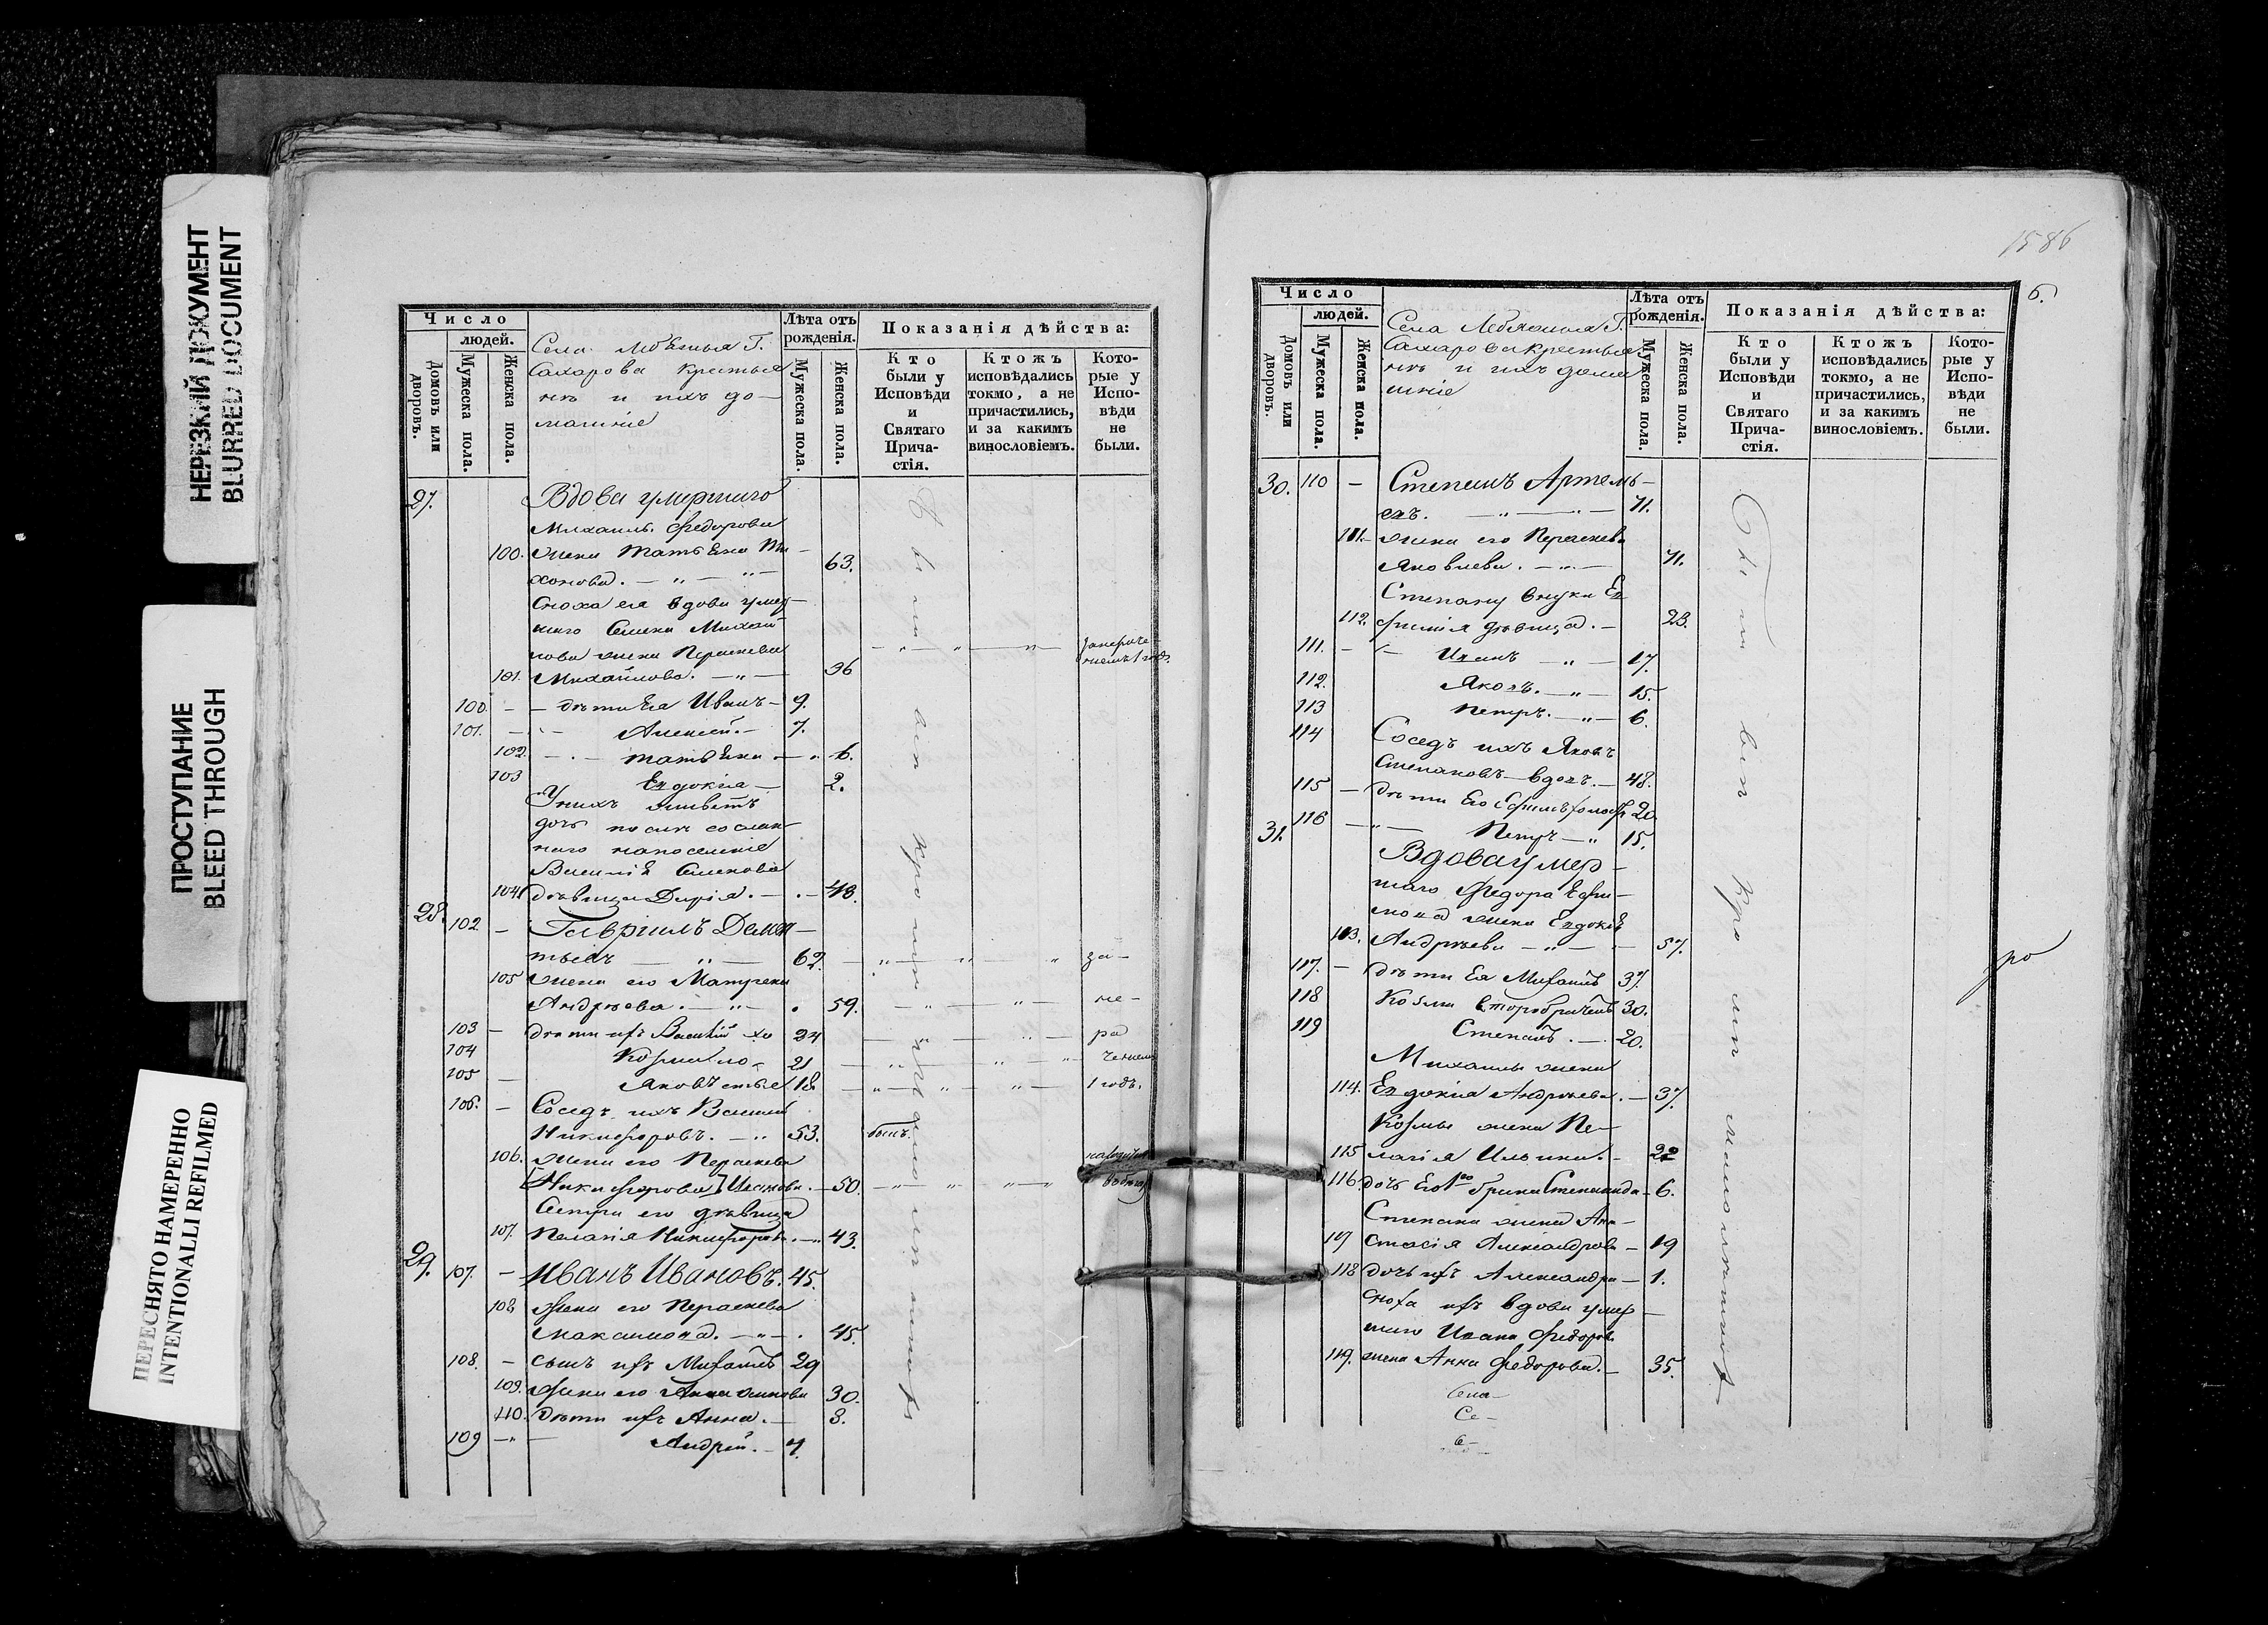 НЕРЕЗКИЙ ДОКУМЕНТ
BLURRED DOCUMENT
ПРОСТУПАНИЕ
BLEED THROUGH
ПЕРЕСНЯТО НАМЕРЕННО
INTENTIONALLI REFILMED
Число
людей.
Домовъ или дворовъ.
Мужеска пола.
Женска пола.
Села Г.
Сахарова крестья
не и ихъ до-
машніе
Лѣта отъ рожденія.
Мужеска пола.
Женска пола.
Показанія дѣйства:
Кто были у Исповѣди и Святаго Причастія.
Ктожъ исповѣдались токмо, а не причастились, и за какимъ винословіемъ.
Которые у Исповѣди не были.
27. Вдова умершаго
Михаила Федорова
100. жена Татьяна Ти-
хонова. — „ — „ — 63.
Сноха ея вдова умер-
шаго Семена Михай
лова жена Параскева
101. Михайлова. — „ — 36
100. — дѣти Ея Иванъ — 9.
101. — Алексѣй. — 7.
102. — Татьяна — „ 6.
103 Евдокіа — 2.
У нихъ живетъ
дочь послѣ сослан-
наго на поселеніе
Василія Семенова
104 дѣвица Дарія. — 48.
28. 102 — Гавріилъ Демен-
тьевъ — „ — 62. — „ — „ — „ за-
105 жена его Матрена
Андрѣева. — „ — 59. — „ — „ — не-
103 — дѣти ихъ Василій хо 24 ра
104 Козма хо — 21 ченіемъ
105 — Яковъ 18 — „ — „ — „ — 1 годъ.
106. — Сосѣдъ ихъ Василій
Никифоровъ. — „ 53. былъ.
106. жена его Параскева
[Никифорова] Иванова. — 50.
Сестра его дѣвица
107. Пелагія Никифорова. — „ 43.
29. 107. — Иванъ Ивановъ. 45.
108 жена его Параскева
Максимова. — „ — 45.
108. — сынъ ихъ Михаилъ 29
109. жена его Анна 30.
110. дѣти ихъ Анна. — 8.
109 — „ — Андрей. — 4.
1586
6.
Число
людей.
Домовъ или дворовъ.
Мужеска пола.
Женска пола.
Села Г.
Сахарова крестья
не и ихъ дома
шніе
Лѣта отъ рожденія.
Мужеска пола.
Женска пола.
Показанія дѣйства:
Кто были у Исповѣди и Святаго Причастія.
Ктожъ исповѣдались токмо, а не причастились, и за какимъ винословіемъ.
Которые у Исповѣди не были.
30. 110 — Степанъ Артемь-
евъ. — „ — 71.
111. — жена его Параскева
Яковлева. — „ — 71.
Степану внуки Ев
112. фимія дѣвица. — 23.
111. — Иванъ — „ — 17.
112. Яковъ. — „ — 15.
113 Петръ. — „ — 6.
114 Сосѣдъ ихъ Яковъ
Степановъ — вдовъ. — 48.
115 — дѣти Его холост 20.
116 — „ — Петръ — „ 15.
31. Вдова умер-
шаго Федора Ефи-
мова жена Евдокія
113. Андрѣева — „ — 57.
117. — дѣти Ея Михаилъ 37.
118 Козма второбрачный 30.
119 Степанъ. — 20.
Михаилы жена
114. Евдокіа Андрѣева. — 37.
Козмы жена Пе-
115 лагія Ильина. — 22
116. дочь Его 1го брака Степанида — 6.
Степана жена Ана-
117 стасія Александрова — 19
118 дочь ихъ Александра — 1.
сноха ихъ вдова умер —
шаго Ивана Федорова
119. жена Анна Федорова. — 35.
Села-
Се-
ро